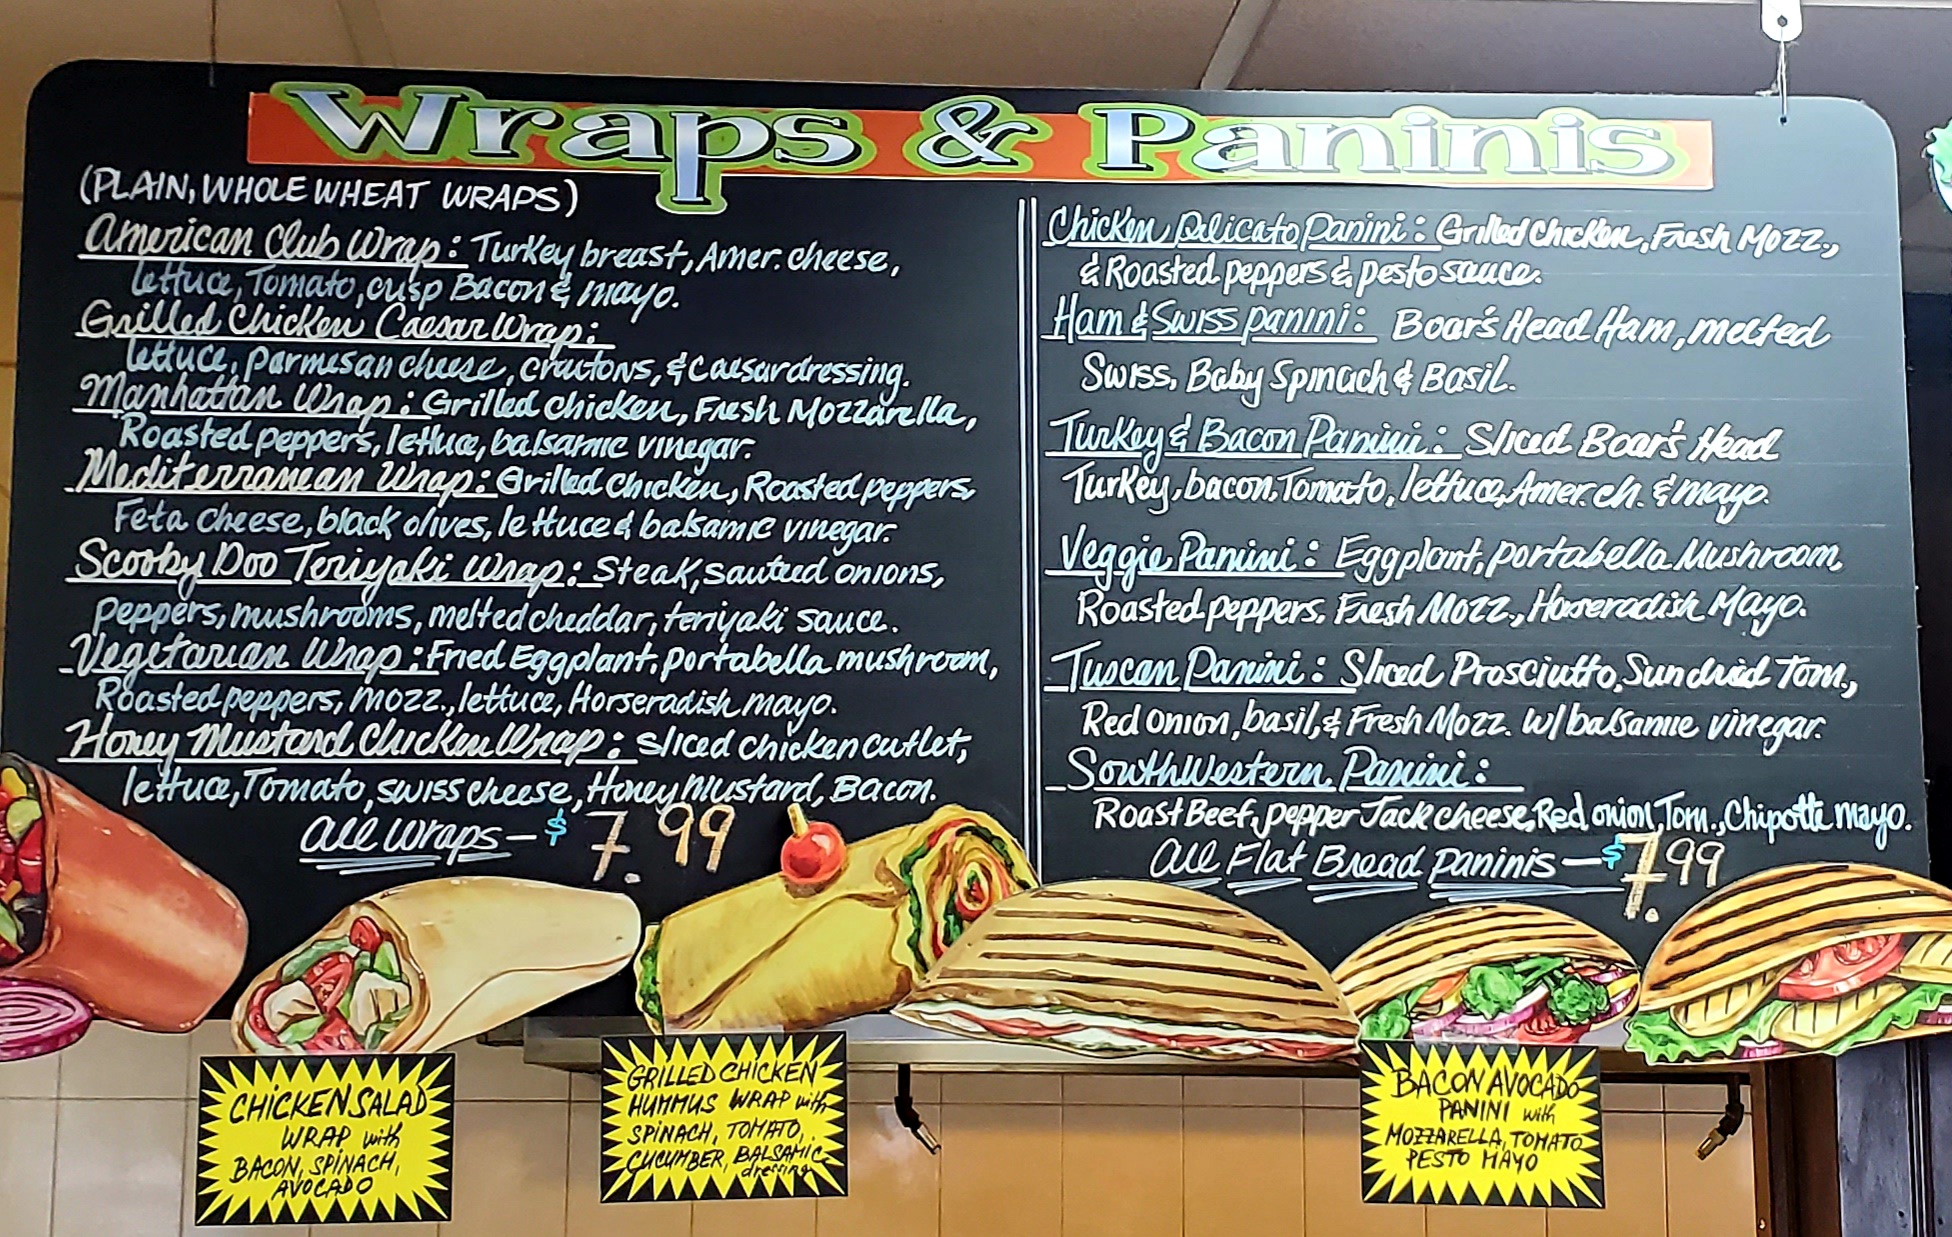 Wraps & Paninis
(PLAIN, WHOLE WHEAT WRAPS)
American Club Wrap: Turkey breast, Amer. cheese,
lettuce, Tomato, crisp Bacon & mayo.
Grilled Chicken Caesar Wrap:
lettuce, parmesan cheese, croutons, & Caesar dressing.
Manhattan Wrap: Grilled chicken, Fresh Mozzarella,
Roasted peppers, lettuce, balsamic vinegar.
Mediterranean Wrap: Grilled Chicken, Roasted peppers,
Feta cheese, black olives, lettuce & balsamic vinegar.
Scooby Doo Teriyaki Wrap: Steak, sauteed onions,
peppers, mushrooms, melted cheddar, teriyaki sauce.
Vegetarian Wrap: Fried Eggplant, portabella mushroom,
Roasted peppers, mozz., lettuce, Horseradish mayo.
Honey Mustard Chicken Wrap: Sliced chicken cutlet,
lettuce, Tomato, swiss cheese, Honey Mustard, Bacon.
All wraps - $7.99
Chicken Delicato Panini: Grilled Chicken, Fresh Mozz.,
& Roasted peppers & pesto sauce.
Ham & Swiss panini: Boar's Head Ham, melted
Swiss, Baby Spinach & Basil.
Turkey & Bacon Panini: Sliced Boar's Head
Turkey, bacon, Tomato, lettuce, Amer. ch. & mayo.
Veggie Panini: Eggplant, portabella Mushroom,
Roasted peppers, Fresh Mozz., Horseradish Mayo.
Tuscan Panini: Sliced Prosciutto, Sun dried Tom.,
Red onion, basil, & Fresh Mozz. w/ balsamic vinegar.
SouthWestern Panini:
Roast Beef, pepper Jack cheese, Red onion, Tom., Chipotle mayo.
All Flat Bread paninis - $7.99
CHICKEN SALAD
WRAP with
BACON, SPINACH,
AVOCADO
GRILLED CHICKEN
HUMMUS WRAP with
SPINACH, TOMATO,
CUCUMBER, BALSAMIC
dressing
BACON AVOCADO
PANINI with
MOZZARELLA, TOMATO
PESTO MAYO